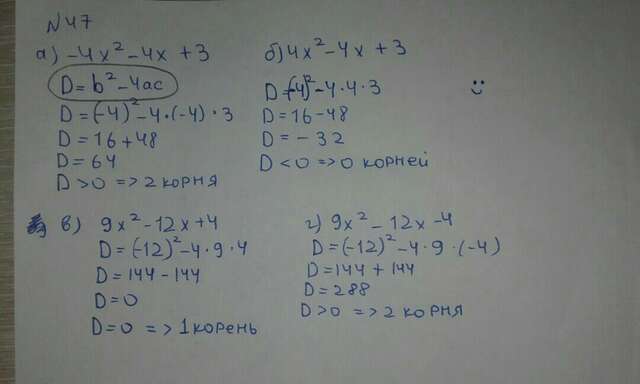 №47
а) -4x² - 4x + 3
D = b² - 4ac
D = (-4)² - 4·(-4)·3
D = 16 + 48
D = 64
D > 0 => 2 корня
б) 4x² - 4x + 3
D = (-4)² - 4·4·3
D = 16 - 48
D = - 32
D < 0 => 0 корней
в) 9x² - 12x + 4
D = (-12)² - 4·9·4
D = 144 - 144
D = 0
D = 0 => 1 корень
г) 9x² - 12x - 4
D = (-12)² - 4·9·(-4)
D = 144 + 144
D = 288
D > 0 => 2 корня